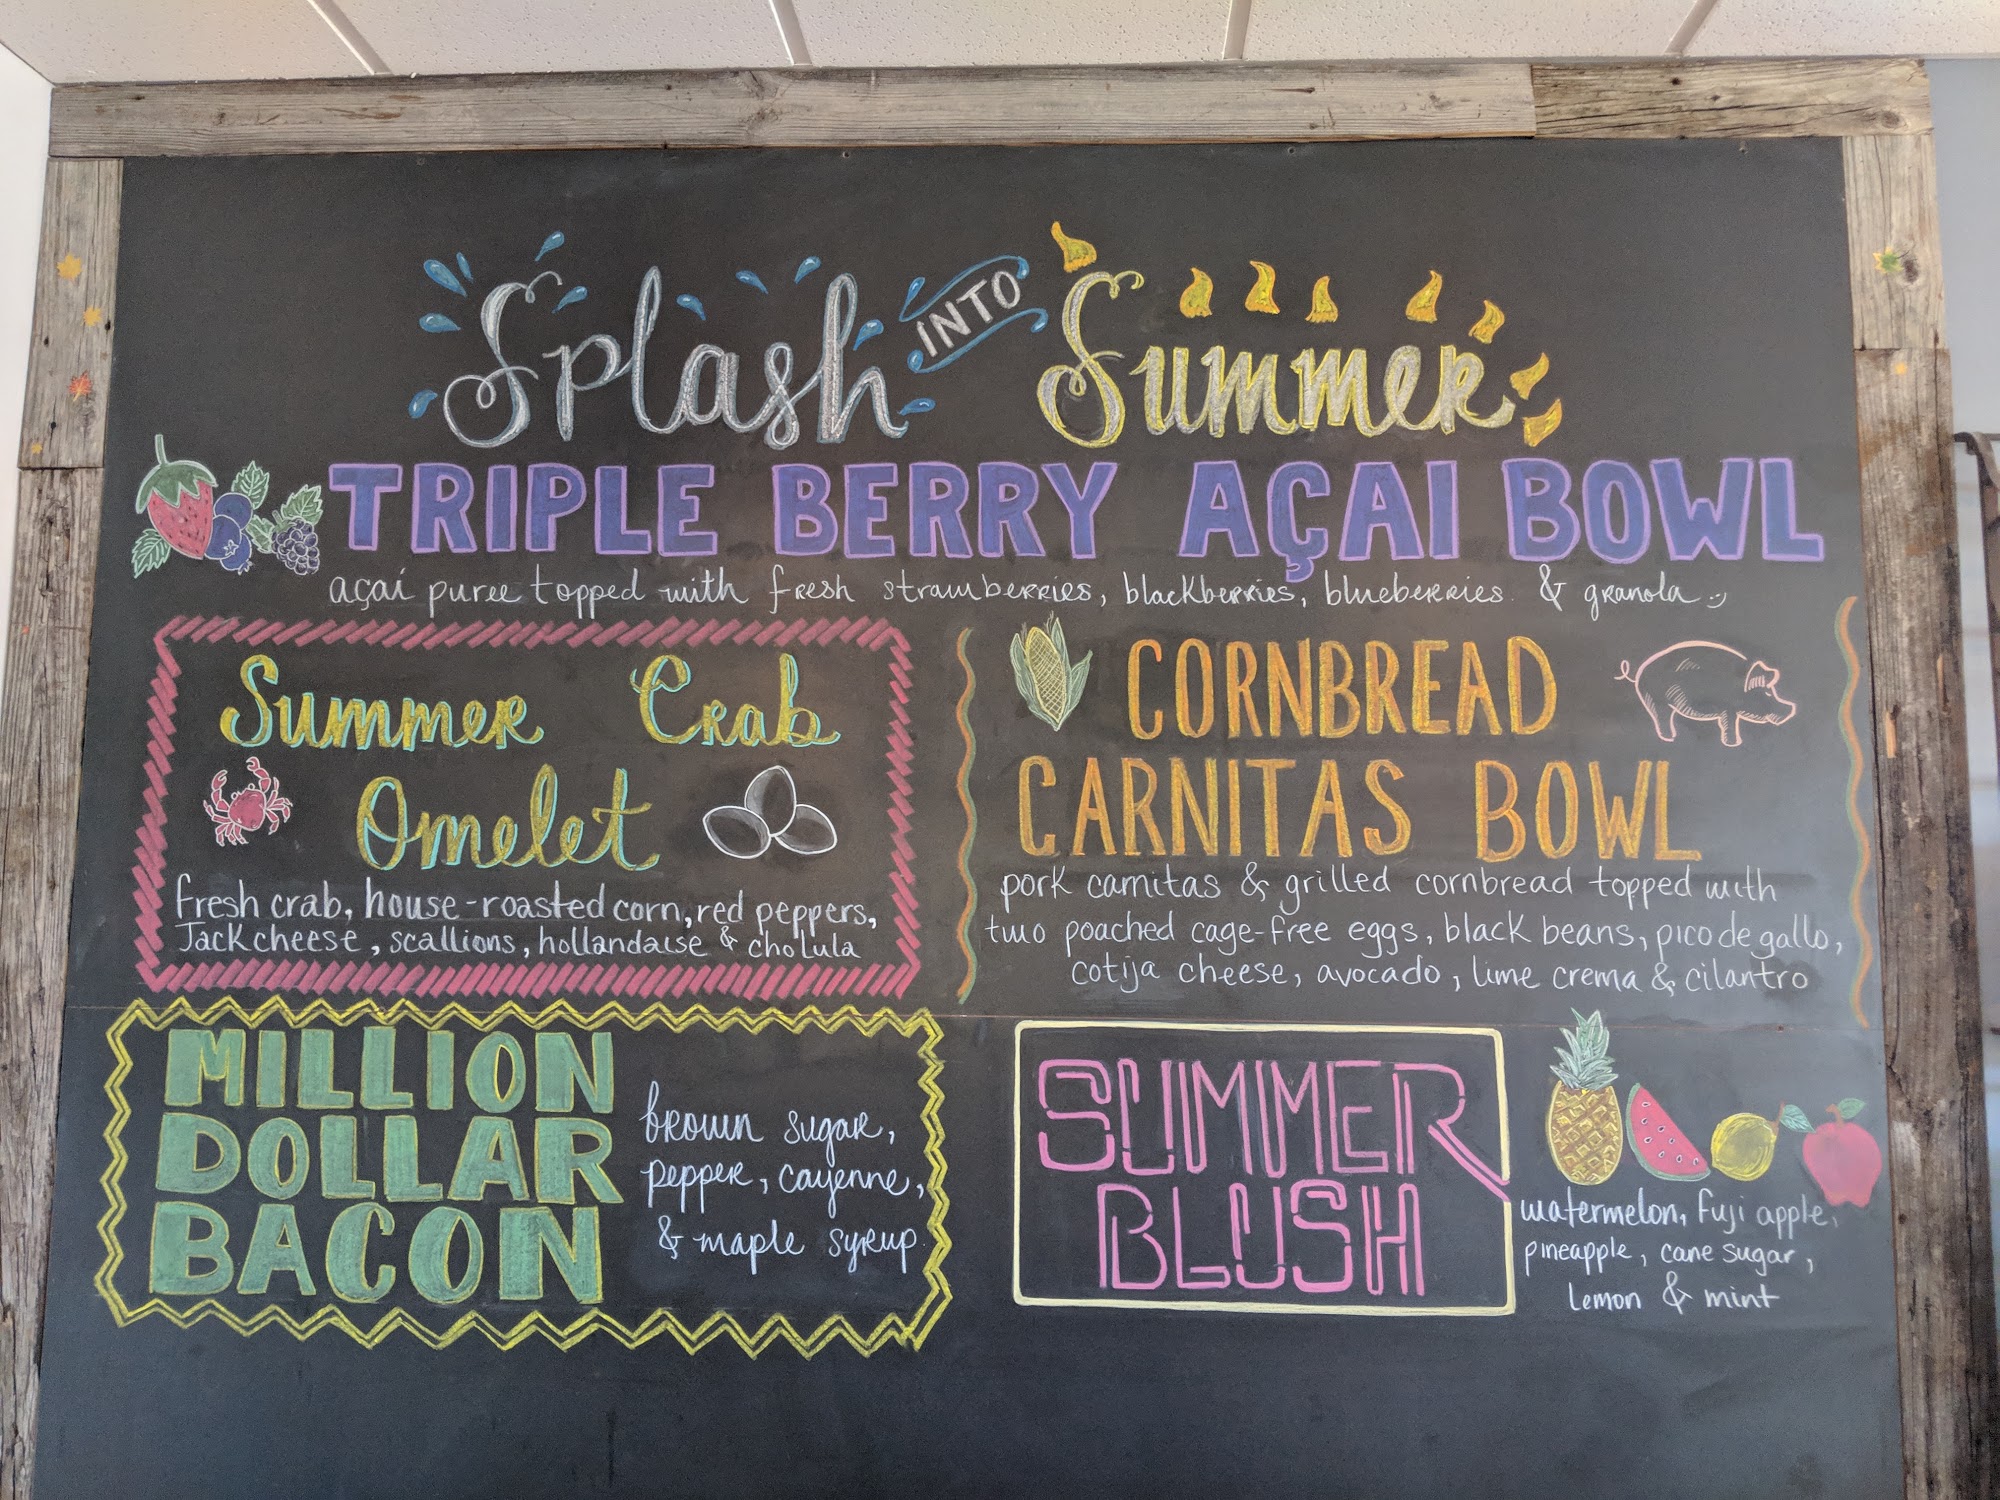 Splash INTO Summer
TRIPLE BERRY AÇAI BOWL
açaí puree topped with fresh strawberries, blackberries, blueberries & granola
Summer Crab
Omelet
fresh crab, house-roasted corn, red peppers,
Jack cheese, scallions, hollandaise & cholula
CORNBREAD
CARNITAS BOWL
pork carnitas & grilled cornbread topped with
two poached cage-free eggs, black beans, pico de gallo,
cotija cheese, avocado, lime crema & cilantro
MILLION
DOLLAR
BACON
brown sugar,
pepper, cayenne,
& maple syrup.
SUMMER
BLUSH
watermelon, fuji apple,
pineapple, cane sugar,
lemon & mint